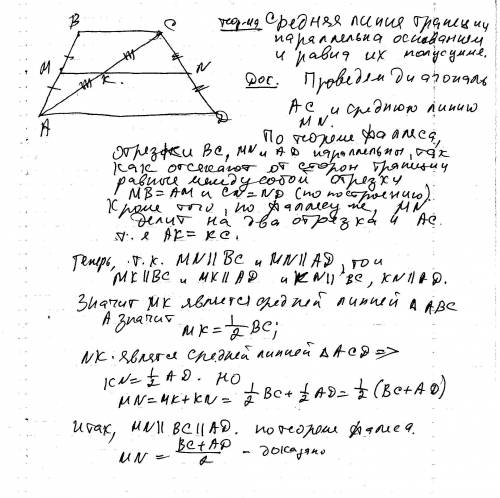 B
C
M
N
K
A
D
теор-ма Средняя линия трапеции
параллельна основанием
и равна их полусумме.
Док. Проведем диагональ
AC и среднюю линию
MN.
По теореме Фаллеса,
отрезки BC, MN и AD параллельны, так
как отсекают от сторон трапеции
равные между собой отрезки
MB=AM и CN=ND (по построению).
Кроме того, по Фаллесу же, MN
делит на два отрезка и AC.
т.е AK=KC.
Теперь, т.к. MN||BC и MN||AD, то и
MK||BC и MK||AD и KN||BC, KN||AD.
Значит MK является средней линией Δ ABC
А значит
MK=1/2 BC;
NK является средней линией ΔACD =>
KN=1/2 AD. НО
MN=MK+KN= 1/2 BC+1/2 AD=1/2 (BC+AD)
Итак, MN||BC||AD. по теореме Фалеса.
MN= BC+AD/2 - доказано